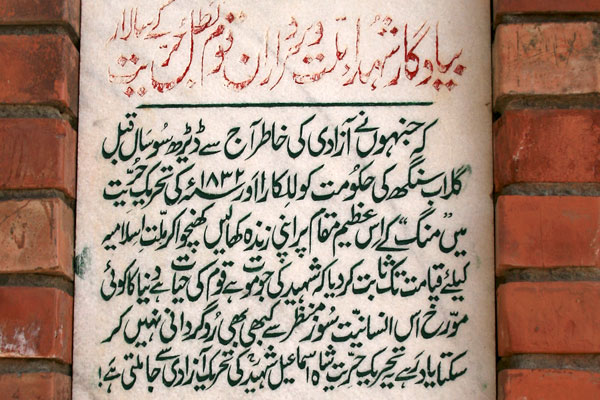 بیادگار شہداء ملت و سرداران قوم بطل حریت کے سالار
کہ جنہوں نے آزادی کی خاطر آج سے ڈیڑھ سو سال قبل
گلاب سنگھ کی حکومت کو للکارا اور سنہ ۱۸۳۲ء کی تحریک حریت
میں "منگ" کے اس عظیم مقام پر اپنی زندہ کھالیں کھنچوا کر ملت اسلامیہ
کیلئے قیامت تک ثابت کر دیا کہ شہید کی جو موت ہے قوم کی حیات ہے دنیا کا کوئی
مورخ اس انسانیت سوز منظر سے کبھی بھی روگردانی نہیں کر
سکتا یاد رہے یہ تحریک حریت شاہ اسماعیل شہیدؒ کی تحریک آزادی سے جا ملتی ہے!